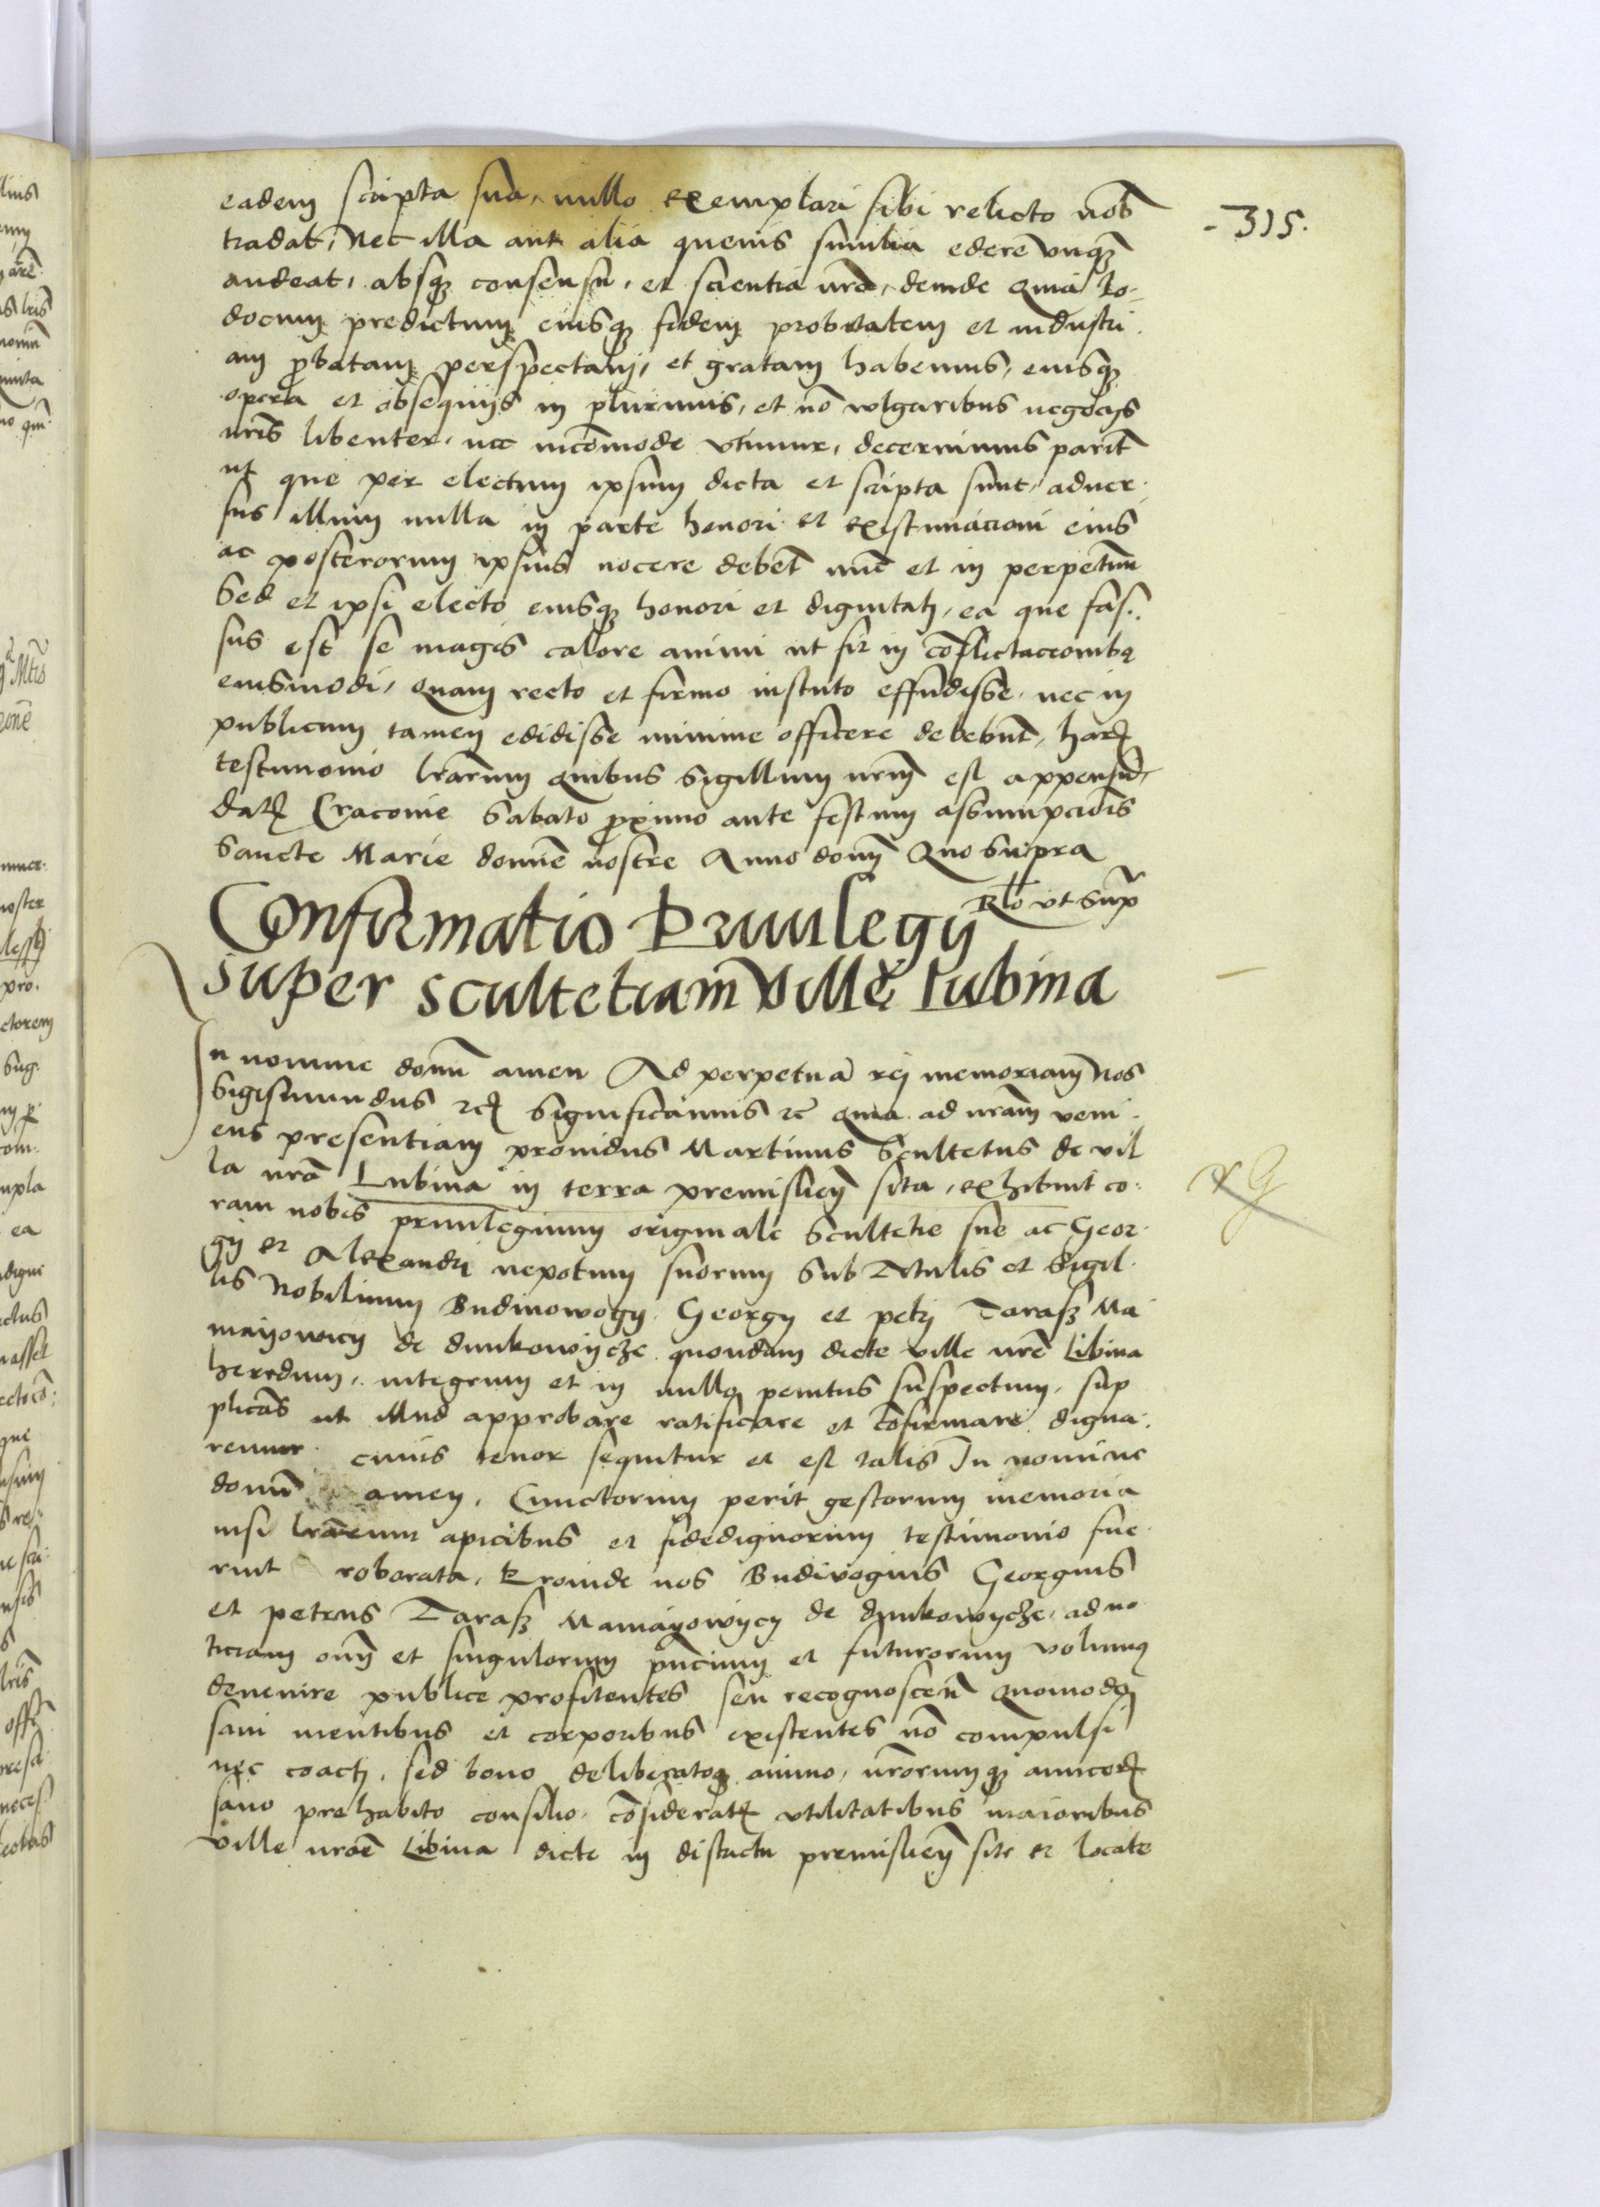 - 315.
eadem scripta sua, nullo exemplari sibi relicto nob̃
tradat, Nec illa aut alia quevis similia edere unqȝ
audeat, absqȝ consensu, et scientia nr̃a, deinde Quia Io-
docum predictum eiusqȝ fidem probitatem et industri
am ꝓbatam perspectam, et gratam habemus, eiusqȝ
opera et obsequijs in plurimis, et nõ vulgaribus negocijs
nr̃is libenter, nec incõmode vtimur, decernimus parit̃
ut que per electum ipsum dicta et scripta sunt, adver-
sus illum nulla in parte honori et existimacioni eius
ac posterorum ipsius nocere debet nũc et in perpetuũ
Sed et ipsi electo eiusqȝ honori et dignitatj, ea que fas-
sus est se magis calore animi ut fit in cõflictacionibꝯ
eiusmodi, Quam recto et firmo instituto effudisse, nec in
publicum tamen edidisse minime officere debebũt, harꝝ
testimonio lr̃arum Quibus Sigillum nr̃m est appensũ,
datꝝ Cracovie Sabato ꝓximo ante festum assumpciõis
Sancte Marie domine nostre Anno domj Quo Supra
Rlo vt sup̃
Confirmatio Privilegij
super scultetiam Ville Lubina
In nomine domĩ amen Ad perpetuã rei memoriam Nos
Sigismundus ꝛcꝝ Significamus ꝛc̃ Quia ad nr̃am veni-
ens presentiam providus Martinus Scultetus de vil
la nr̃a Lubina in terra premislien̄ sita, exhibuit co-
ram nobis privilegium originale Scultetie sue ac Geor-
gij et Alexandri nepotum suorum Sub Titulis et Sigil-
lis Nobilium Budiwowogij Georgij et petrj Tarasz Ma
mayowicij de dunkowijcze quondam dicte ville nr̃e Libina
heredum, integrum et in nullo penitus suspectum, sup
plicãs ut illud approbare ratificare et cõfirmare digna-
remur cuius tenor sequitur et est talis In nomine
domĩ amen, Cunctorum perit gestorum memoria
nisi lr̃arum apicibus et fidedignorum testimonio fue-
rint roborata, Proinde nos Budivogius Georgius
et petrus Tarasz Mamayowijcij de dunkowycze, ad no
ticiam om̃j et singulorum p̃ncium et futurorum volumꝯ
devenire publice profitentes seu recognoscen̄ Quomodo
sani mentibus et corporibus existentes nõ compulsi
nec coactj, sed bono deliberatoqȝ animo, nr̃orumqȝ amicorꝝ
sano prehabito consilio, cõsideratꝝ vtilitatibus maioribus
ville nr̃e Libina dicte in districtu premislien̄ site et locate